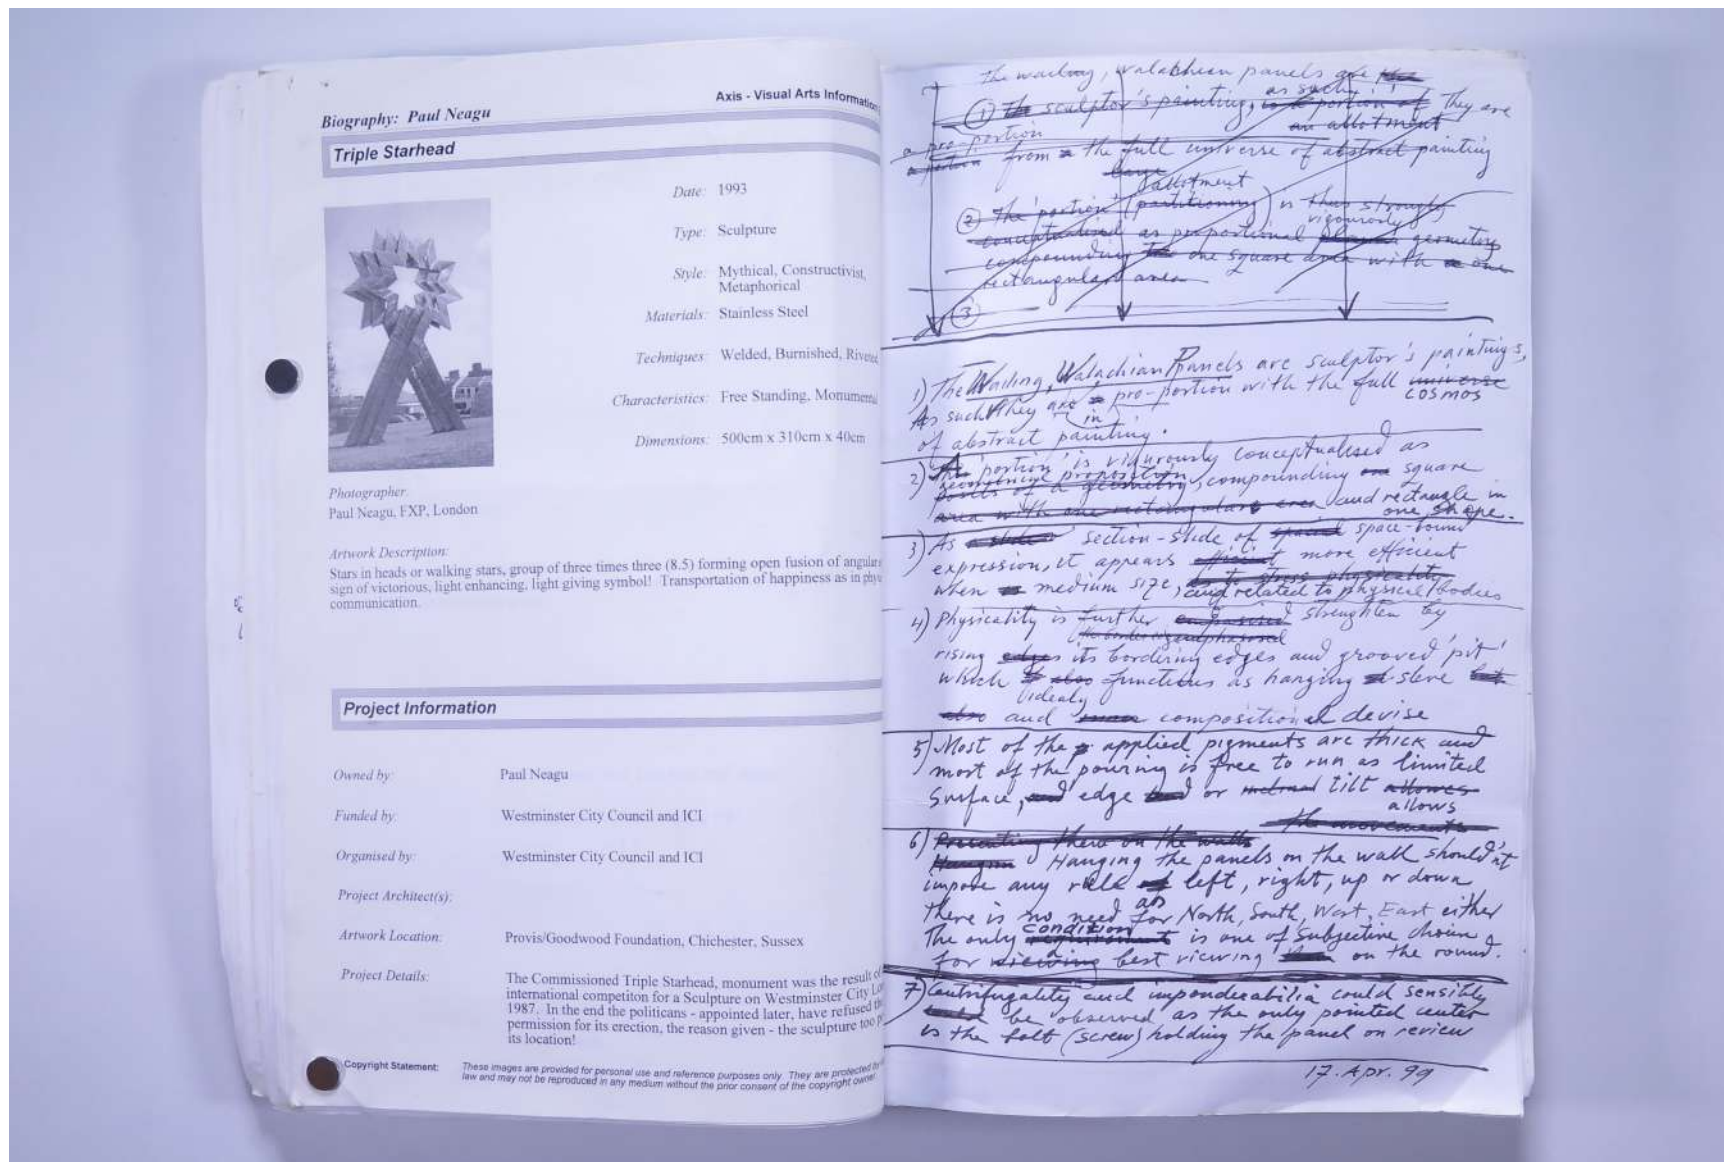 Biography: Paul Neagu
Axis - Visual Arts Information
Triple Starhead
Date: 1993
Type: Sculpture
Style: Mythical, Constructivist,
Metaphorical
Materials: Stainless Steel
Techniques: Welded, Burnished, Riveted
Characteristics: Free Standing, Monumental
Dimensions: 500cm x 310cm x 40cm
Photographer:
Paul Neagu, FXP, London
Artwork Description:
Stars in heads or walking stars, group of three times three (8.5) forming open fusion of angular
sign of victorious, light enhancing, light giving symbol! Transportation of happiness as in
communication.
Project Information
Owned by: Paul Neagu
Funded by: Westminster City Council and ICI
Organised by: Westminster City Council and ICI
Project Architect(s):
Artwork Location: Provis/Goodwood Foundation, Chichester, Sussex
Project Details: The Commissioned Triple Starhead, monument was the result of
international competiton for a Sculpture on Westminster City
1987. In the end the politicans - appointed later, have refused
permission for its erection, the reason given - the sculpture too
its location!
Copyright Statement: These images are provided for personal use and reference purposes only. They are protected
law and may not be reproduced in any medium without the prior consent of the copyright owner
the wailing, walachian panels are
as such!
① the sculptor's painting, is a portion of They are
an allotment
a pro-portion
a portion from a the full universe of abstract painting
allotment
② The 'portion' (partitioning) is thus strongly
vigourously
conceptualised as proportional geometry
compounding the one square area with a one
rectangular area
③
1) The Wailing, Walachian Panels are sculptor's paintings,
As such they are a pro-portion with the full universe
in cosmos
of abstract painting.
2) A 'portion' is vigurously conceptualised as
geometrical proposition, compounding one square
area with one rectangular area and rectangle in
one shape.
3) As a slide section-slide of space-bound
expression, it appears efficient more efficient
when medium size, as to stress physicality
and related to physical bodies
4) Physicality is further emphasised strenghten by
rising edges its bordering edges and grooved 'pit'
which also functions as hanging
also and compositional devise
5) Most of the applied pigments are thick and
most of the pouring is free to run as limited
Surface, and edge or tilt allowes
allows
the movements
6) Presenting them on the walls
Hanging the panels on the wall should'nt
impose any rule of left, right, up or down
as
There is no need for North, South, West, East either
condition
The only requirement is one of subjective choice
for viewing best viewing on the round.
7) Centrifugality and imponderabilia could sensibly
be observed as the only pointed center
is the bolt (screw) holding the panel on review
17. Apr. 99